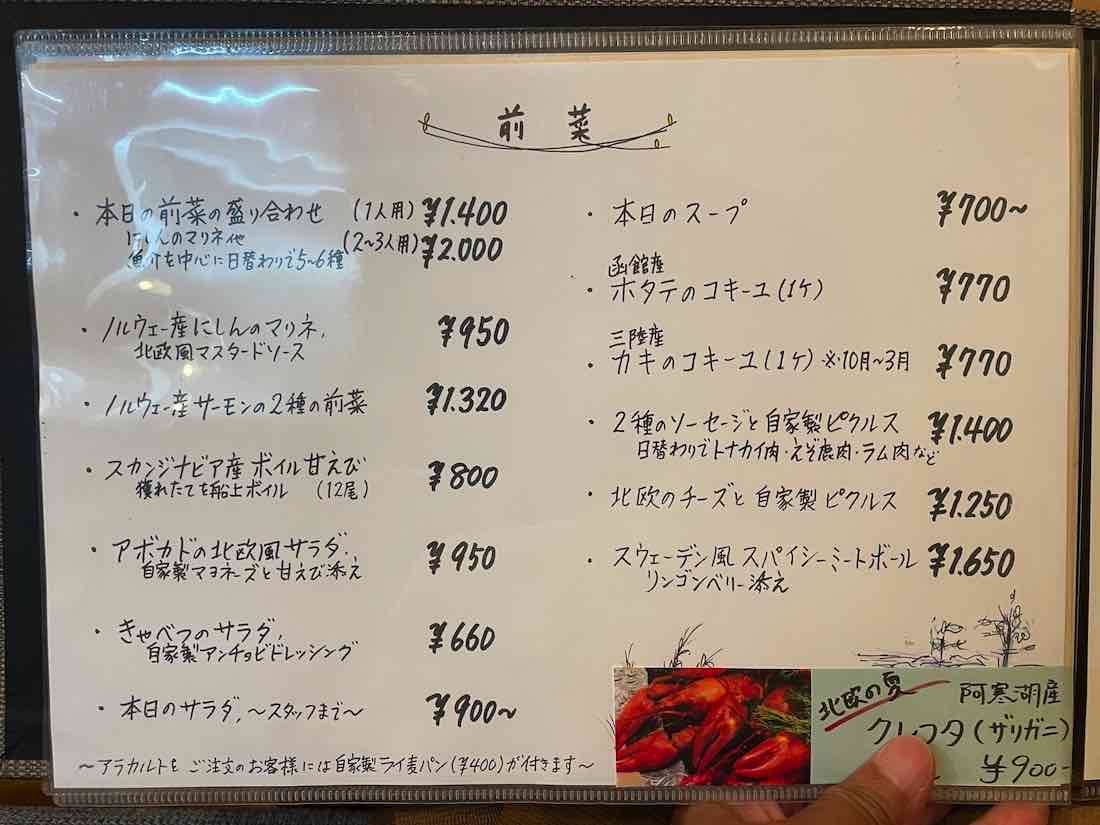 前菜
・本日の前菜の盛り合わせ (1人用) ¥1.400
にしんのマリネ他 (2~3人用) ¥2.000
魚介を中心に日替わりで5~6種
・ノルウェー産にしんのマリネ, ¥950
北欧風マスタードソース
・ノルウェー産サーモンの2種の前菜 ¥1.320
・スカンジナビア産ボイル甘えび ¥800
獲れたてを船上ボイル (12尾)
・アボカドの北欧風サラダ, ¥950
自家製マヨネーズと甘えび添え
・きゃべつのサラダ, ¥660
自家製アンチョビドレッシング
・本日のサラダ, ~スタッフまで~ ¥900~
~アラカルトをご注文のお客様には自家製ライ麦パン(¥400)が付きます~
・本日のスープ ¥700~
函館産
・ホタテのコキーユ(1ケ) ¥770
三陸産
・カキのコキーユ(1ケ) ※10月~3月 ¥770
・2種のソーセージと自家製ピクルス ¥1.400
日替わりでトナカイ肉・えぞ鹿肉・ラム肉など
・北欧のチーズと自家製ピクルス ¥1.250
・スウェーデン風スパイシーミートボール ¥1.650
リンゴンベリー添え
北欧の夏 阿寒湖産
クレフタ(ザリガニ)
¥900-